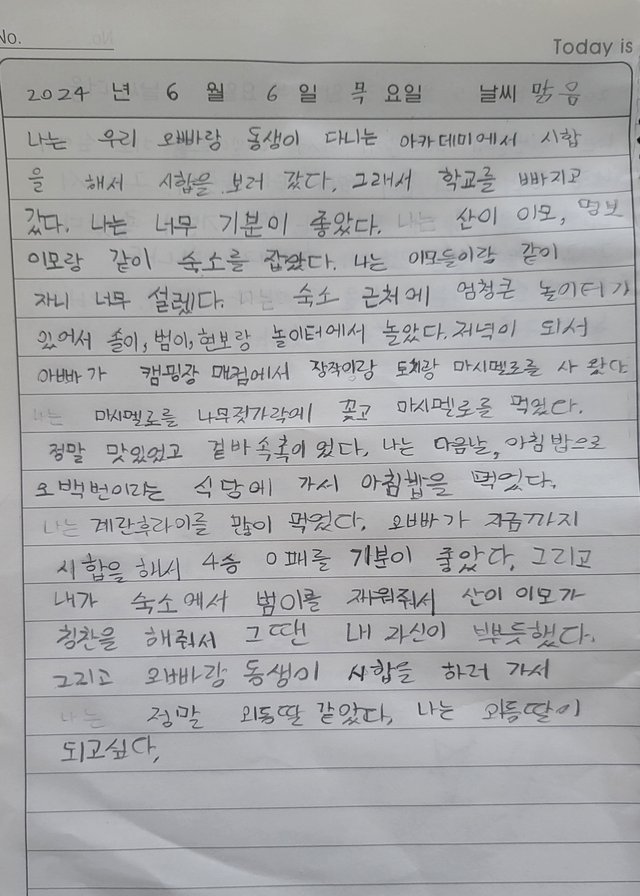 No.
Today is
2024 년 6 월 6 일 목 요일 날씨 맑 음
나는 우리 오빠랑 동생이 다니는 아카데미에서 시합
을 해서 시합을 보러 갔다. 그래서 학교를 빠지고
갔다. 나는 너무 기분이 좋았다. 나는 산이 이모, 명보
이모랑 같이 숙소를 잡았다. 나는 이모들이랑 같이
자니 너무 설렜다. 나는 숙소 근처에 엄청큰 놀이터가
있어서 솔이, 범이, 현보랑 놀이터에서 놀았다. 저녁이 되서
아빠가 캠핑장 매점에서 장작이랑 도치랑 마시멜로를 사 왔다
나는 마시멜로를 나무젓가락에 꽂고 마시멜로를 먹었다.
정말 맛있었고 겉바속촉이 었다. 나는 다음날, 아침밥으로
오백번이라는 식당에 가서 아침밥을 먹었다.
나는 계란후라이를 많이 먹었다. 오빠가 지금까지
시합을 해서 4승 0패를 기분이 좋았다. 그리고
내가 숙소에서 범이를 재워줘서 산이 이모가
칭찬을 해줘서 그땐 내 자신이 뿌듯했다.
그리고 오빠랑 동생이 시합을 하러 가서
나는 정말 외동딸 같았다, 나는 외동딸이
되고싶다,